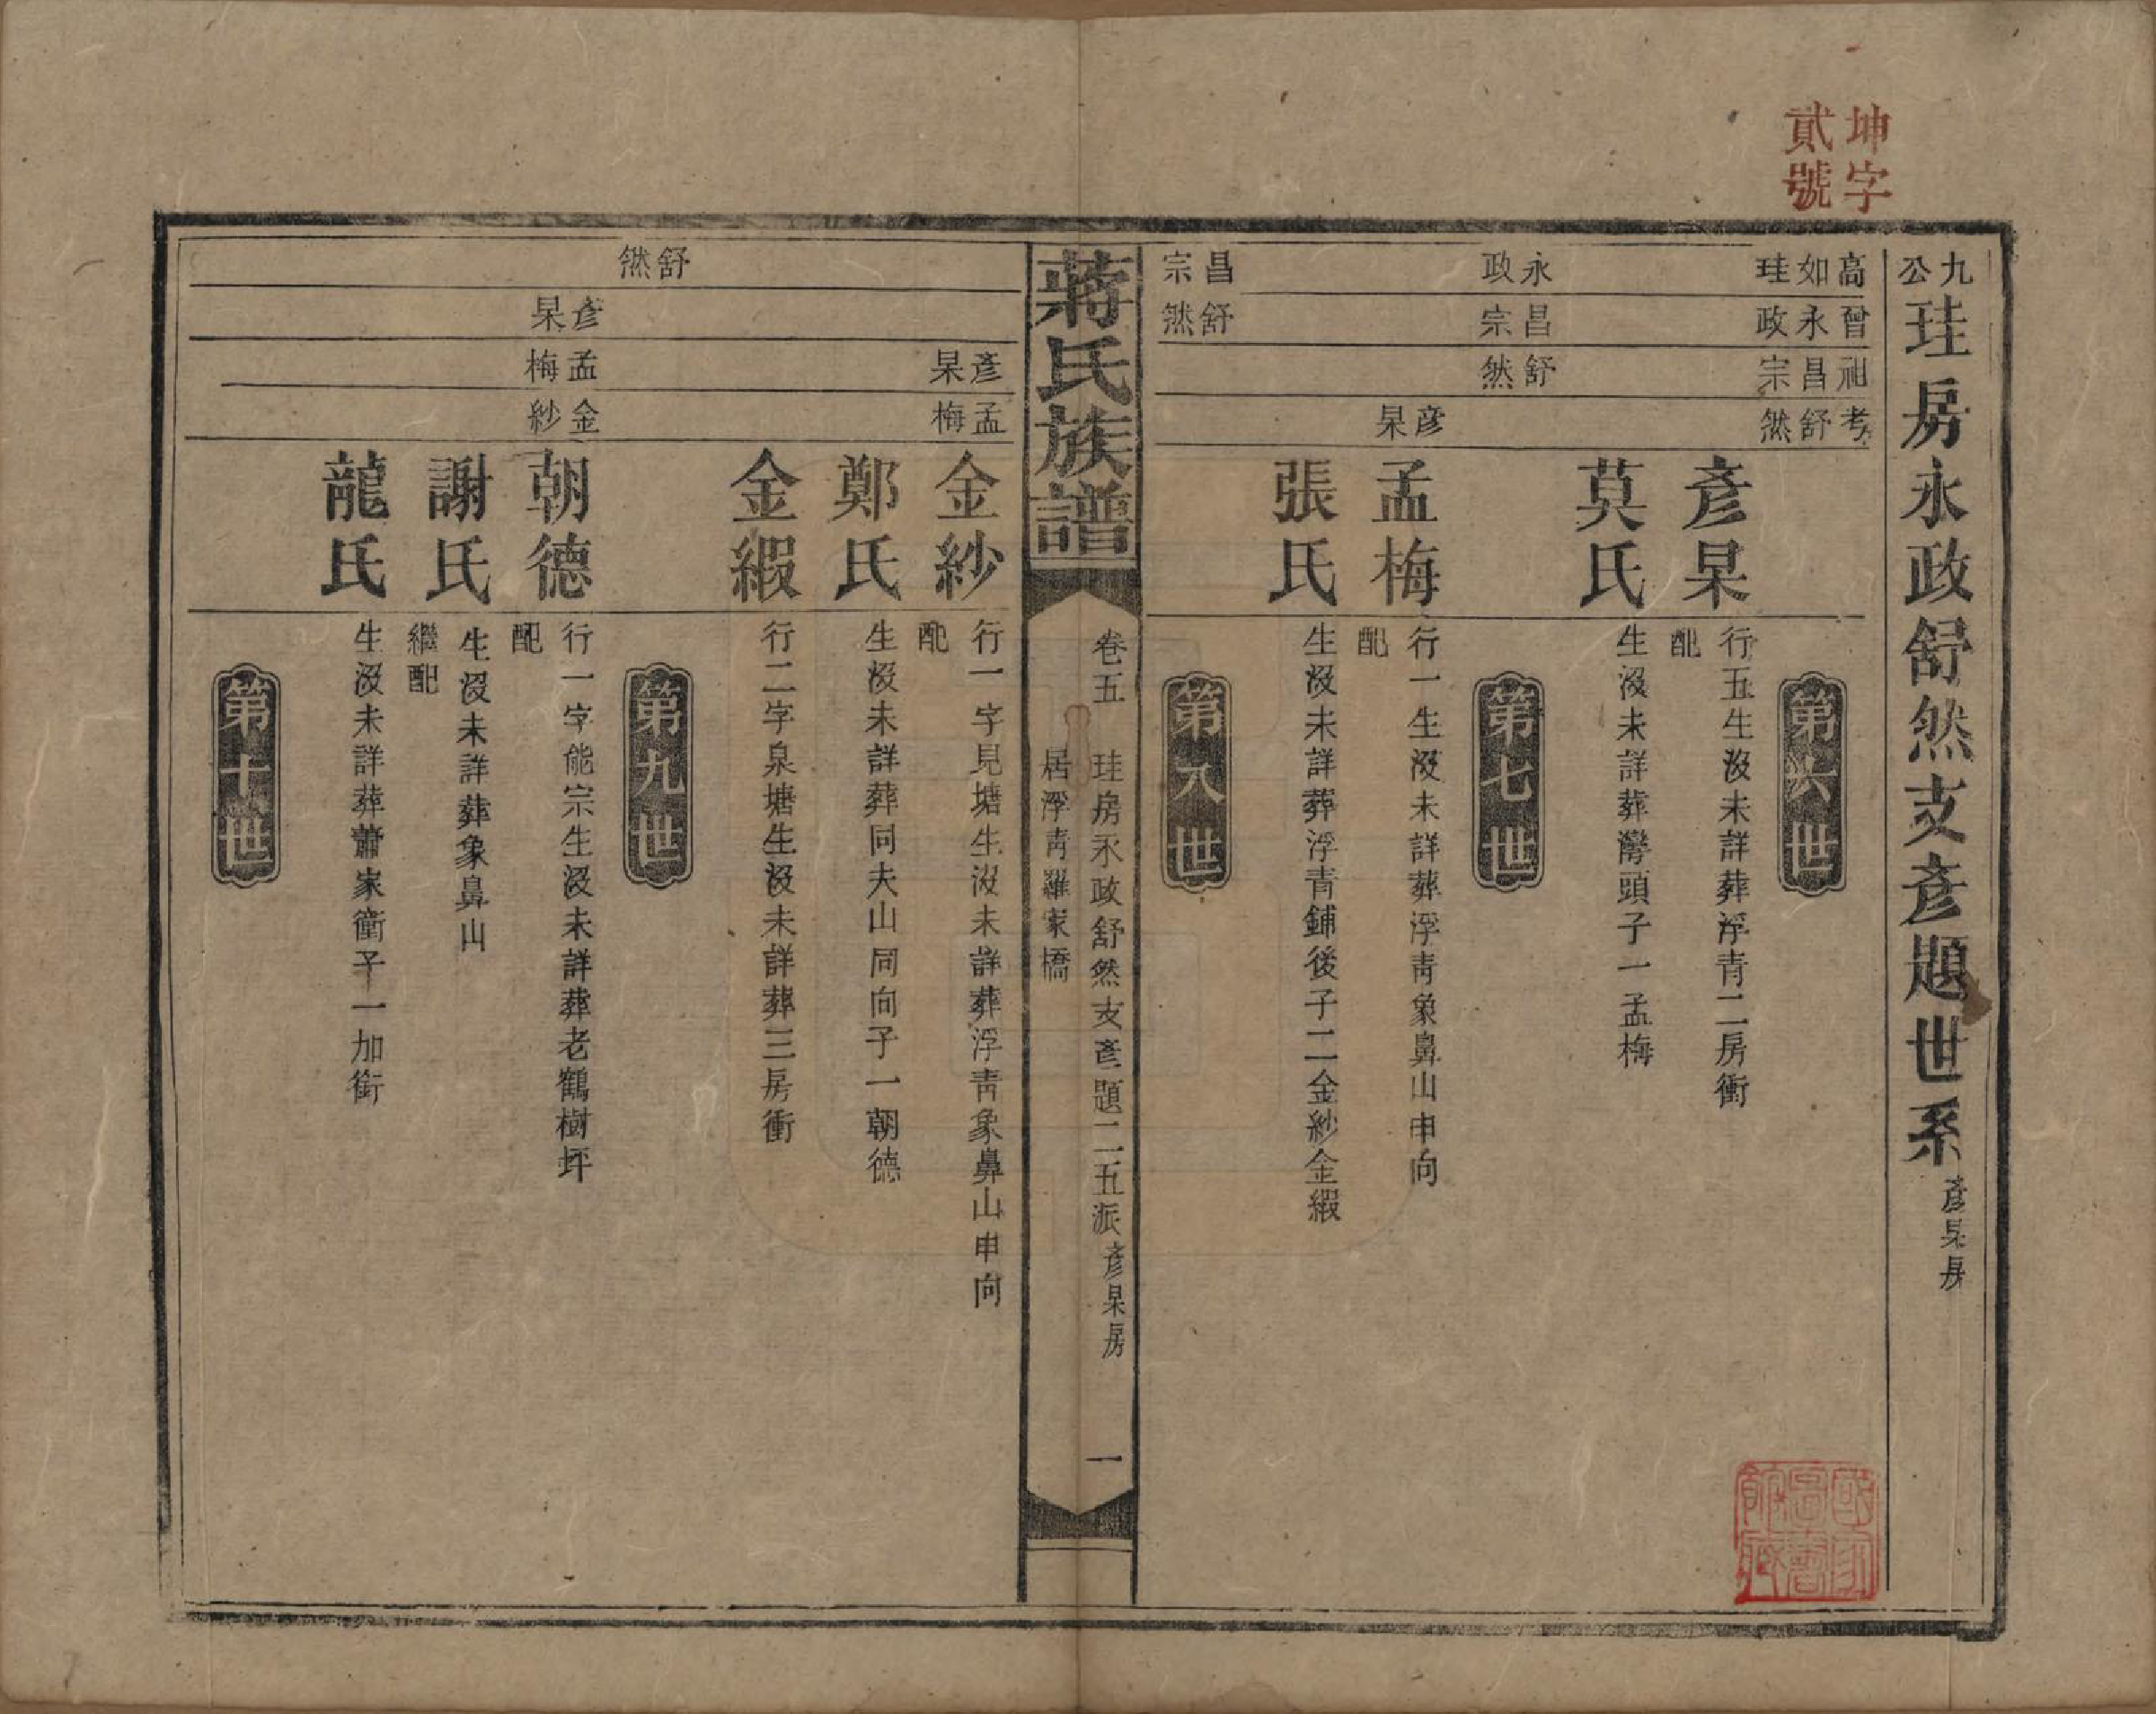 坤字
貳號
九公珪房永政舒然支彥題世系彥杲房
高如珪
曾永政
祖昌宗
考舒然
第六世
彥杲
行五生沒未詳葬浮青二房衝
配
莫氏
生沒未詳葬灣頭子一孟梅
永政
昌宗
舒然
第七世
彥杲
孟梅
行一生沒未詳葬浮青象鼻山申向
配
張氏
生沒未詳葬浮青鋪後子二金紗金緞
昌宗
舒然
第八世
蔣氏族譜
卷五
珪房永政舒然支彥題二五派彥杲房
居浮青羅家橋
一
彥杲
孟梅
金紗
行一字見塘生沒未詳葬浮青象鼻山申向
配
鄭氏
生沒未詳葬同夫山同向子一朝德
金緞
行二字泉塘生沒未詳葬三房衝
舒然
第九世
彥杲
孟梅
金紗
朝德
行一字能宗生沒未詳葬老鶴樹坪
配
謝氏
生沒未詳葬象鼻山
繼配
龍氏
生沒未詳葬蕭家衝子一加銜
第十世
國家圖書館藏